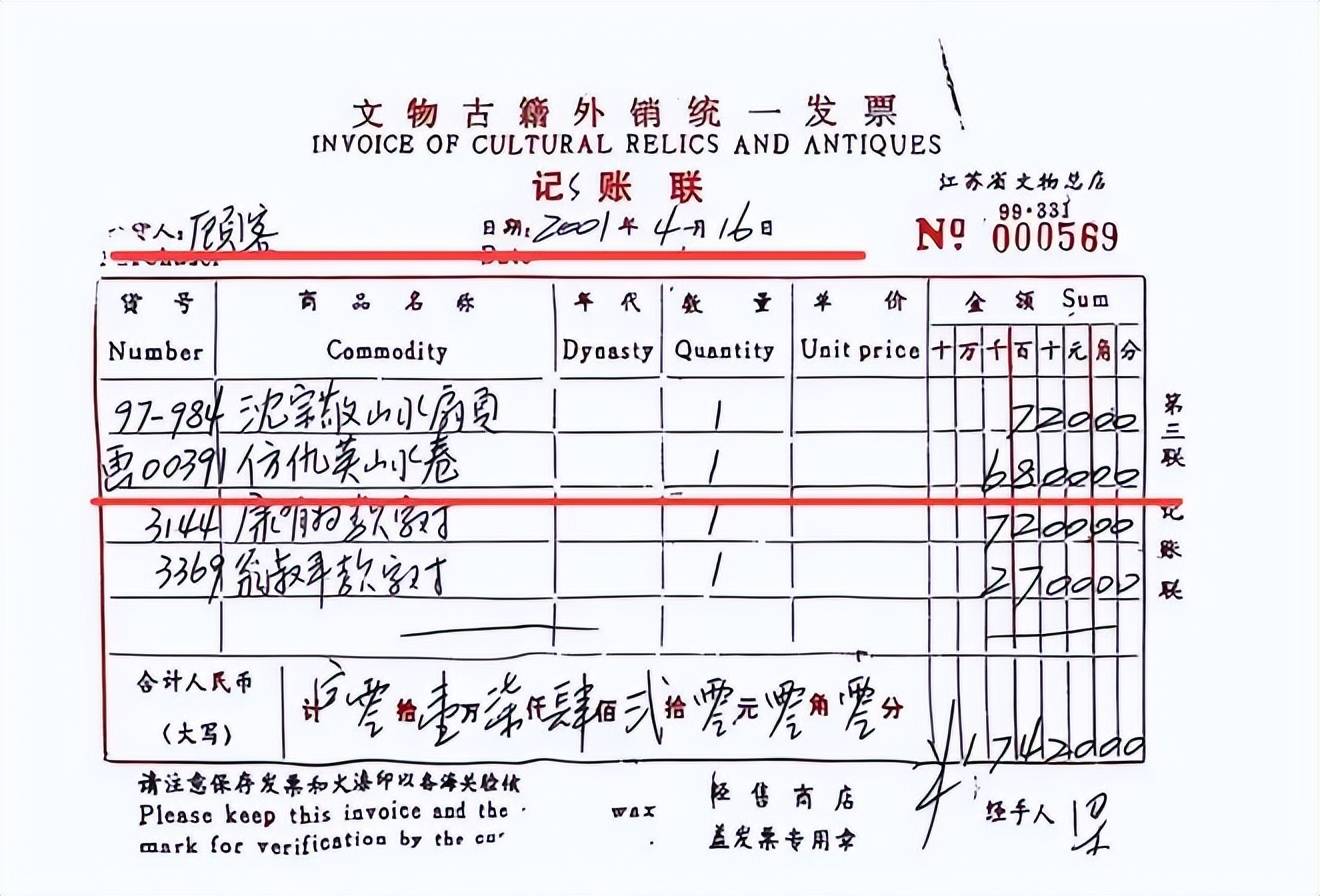 文物古籍外销统一发票
INVOICE OF CULTURAL RELICS AND ANTIQUES
记账联
江苏省文物总店
99·331
顾客 日期: 2001年 4月 16日
Nº 000569
货号 商品名称 年代 数量 单价 金额 Sum
Number Commodity Dynasty Quantity Unit price 十 万 千 百 十 元 角 分
97-984 沈宗敬山水扇页 1 72000
00391 仿仇英山水卷 1 680000
3144 款字对 1 720000
3369 翁叔平款字对 1 270000
第三联 记账联
合计人民币
(大写)
计 零 拾 壹 万 柒 仟 肆 佰 贰 拾 零 元 零 角 零 分
¥1742000
请注意保存发票和火漆印以备海关验
Please keep this invoice and the wax
mark for verification by the
经售商店
盖发票专用章
经手人